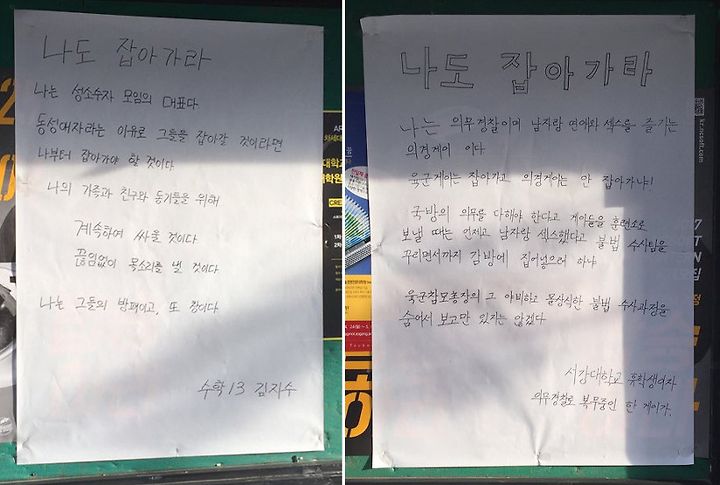 나도 잡아가라
나는 성소수자 모임의 대표다
동성애자라는 이유로 그들을 잡아갈 것이라면
나부터 잡아가야 할 것이다
나의 가족과 친구와 동기들을 위해
계속하여 싸울 것이다
끊임없이 목소리를 낼 것이다
나는 그들의 방패이고, 또 창이다
수학 13 김지수
나도 잡아가라
나는 의무경찰이며 남자랑 연애와 섹스를 즐기는
의경게이 이다
육군게이는 잡아가고 의경게이는 안 잡아가냐!
국방의 의무를 다해야 한다고 게이들을 훈련소로
보낼 때는 언제고 남자랑 섹스했다고 불법 수사팀을
꾸리면서까지 감방에 집어넣으려 하냐
육군참모총장의 그 야비하고 몰상식한 불법 수사과정을
숨어서 보고만 있지는 않겠다
서강대학교 휴학생이자
의무경찰로 복무중인 한 게이가.